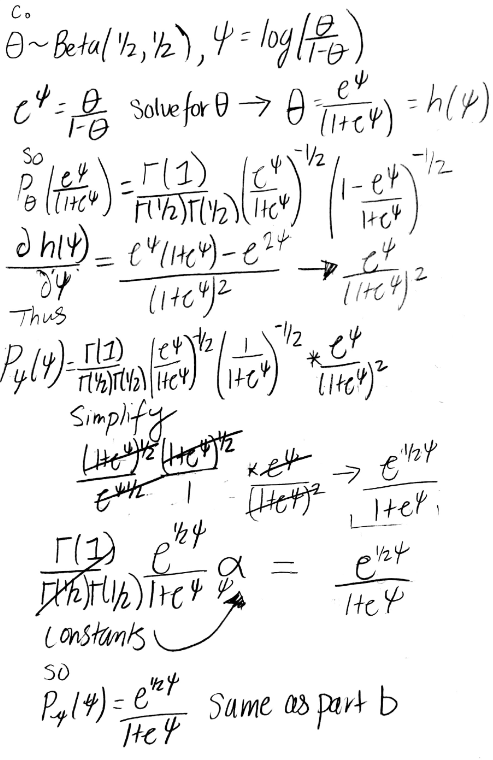 c.
θ ~ Beta(1/2, 1/2), ψ = log(θ/(1-θ))
e^ψ = θ/(1-θ) Solve for θ → θ = e^ψ/(1+e^ψ) = h(ψ)
So
P_θ(e^ψ/(1+e^ψ)) = Γ(1)/(Γ(1/2)Γ(1/2)) (e^ψ/(1+e^ψ))^(-1/2) (1 - e^ψ/(1+e^ψ))^(-1/2)
∂h(ψ)/∂ψ = (e^ψ(1+e^ψ) - e^(2ψ))/(1+e^ψ)^2 → e^ψ/(1+e^ψ)^2
Thus
P_ψ(ψ) = Γ(1)/(Γ(1/2)Γ(1/2)) (e^ψ/(1+e^ψ))^(-1/2) (1/(1+e^ψ))^(-1/2) * e^ψ/(1+e^ψ)^2
Simplify
(1+e^ψ)^(1/2) (1+e^ψ)^(1/2)/(e^(ψ1/2) 1) * e^ψ/(1+e^ψ)^2 → e^(1/2ψ)/(1+e^ψ)
Γ(1)/(Γ(1/2)Γ(1/2)) e^(1/2ψ)/(1+e^ψ) α_ψ = e^(1/2ψ)/(1+e^ψ)
Constants
SO
P_ψ(ψ) = e^(1/2ψ)/(1+e^ψ) Same as part b